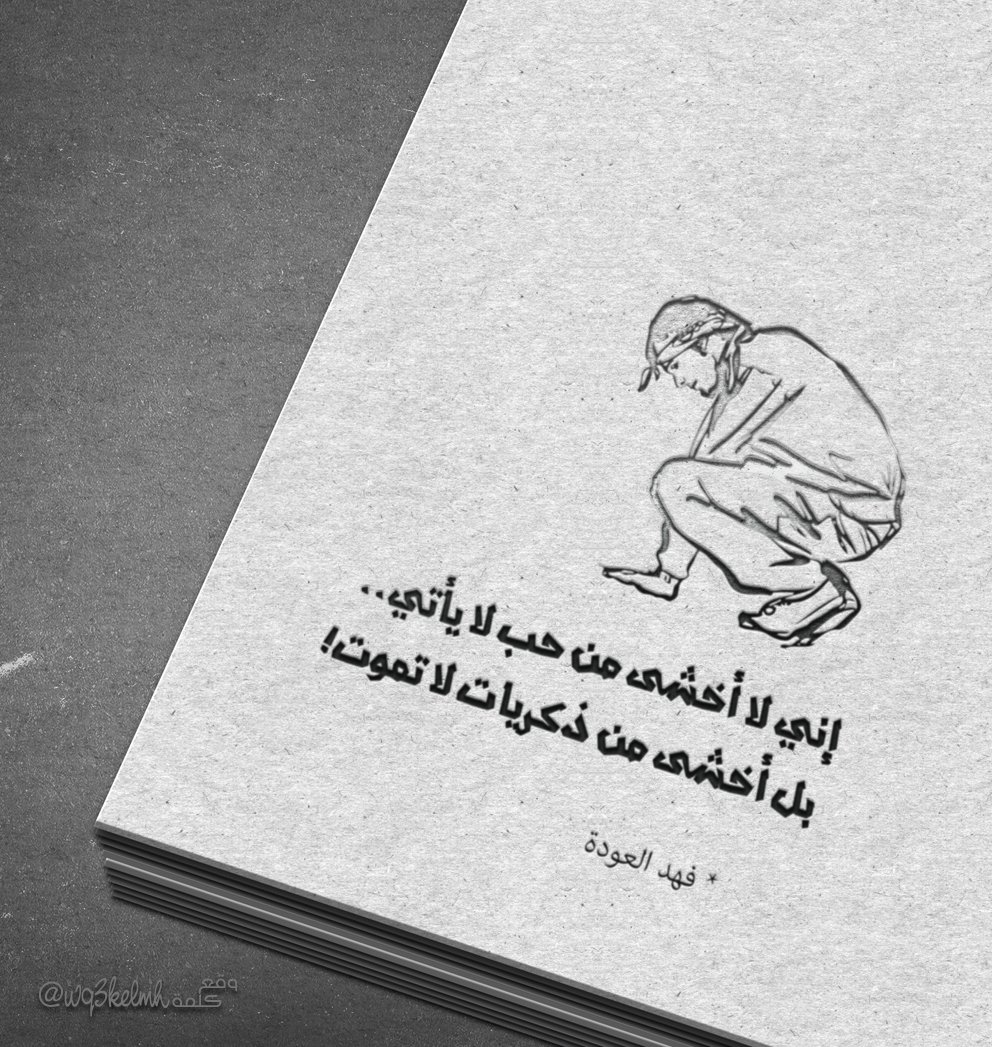 إني لا أخشى من حب لا يأتي..
بل أخشى من ذكريات لا تموت!
* فهد العودة
@wq3kelmh وقع كلمة